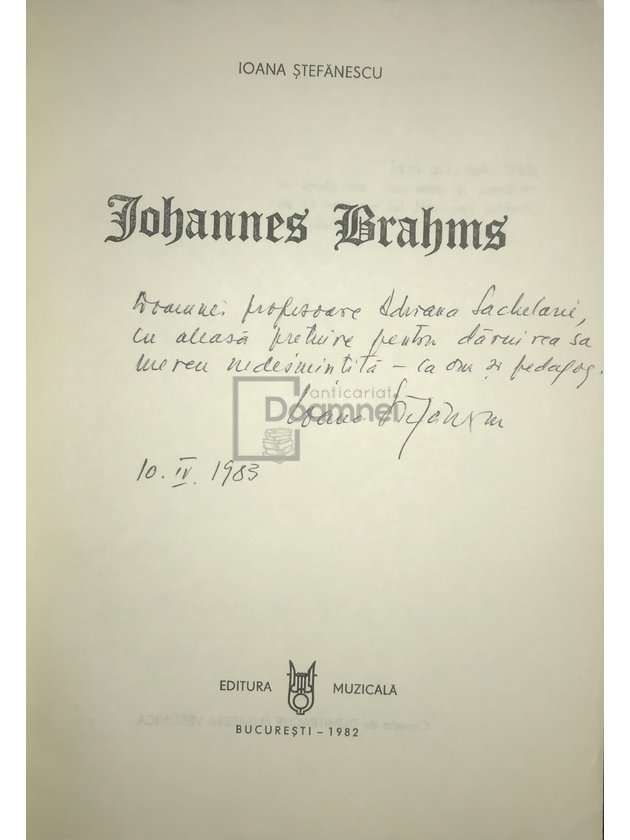 IOANA ȘTEFĂNESCU
Johannes Brahms
Doamnei profesoare Adriana Sachelarie,
cu aleasă prețuire pentru dăruirea sa
mereu nedesmințită – ca om și pedagog.
anticariat
Doamnei
Ioana Ștefănescu
10. IV. 1983
EDITURA MUZICALĂ
BUCUREȘTI – 1982